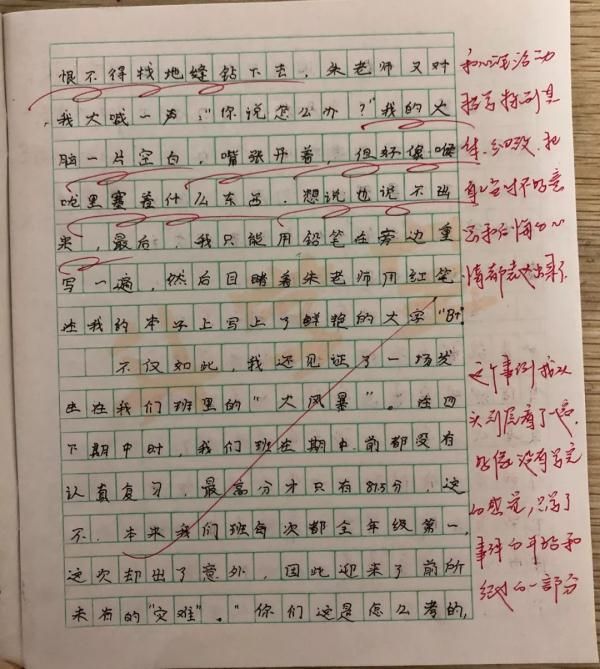 恨不得找地缝钻下去。朱老师又对
我大喊一声：“你说怎么办？”我的大
脑一片空白，嘴张开着，但好像喉
咙里塞着什么东西，想说也说不出
来，最后，我只能用铅笔在旁边重
写一遍，然后目睹着朱老师用红笔
在我的本子上写上了鲜艳的大字“B+”
不仅如此，我还见证了一场发
生在我们班里的“大风暴”。在四
下期中时，我们班在期中前都没有
认真复习，最高分才只有87.5分，这
不，本来我们班每次都全年级第一，
这次却出了意外，因此迎来了前所
未有的“灾难”。“你们这是怎么考的，
和心理活动
描写捕捉具
体、细致，把
自己当时不好意
思和后悔的心
情都表达出来了
这个事例我从
头到尾看了一遍，
好像没有写完
的感觉，只写了
事件的开始和
经过的一部分